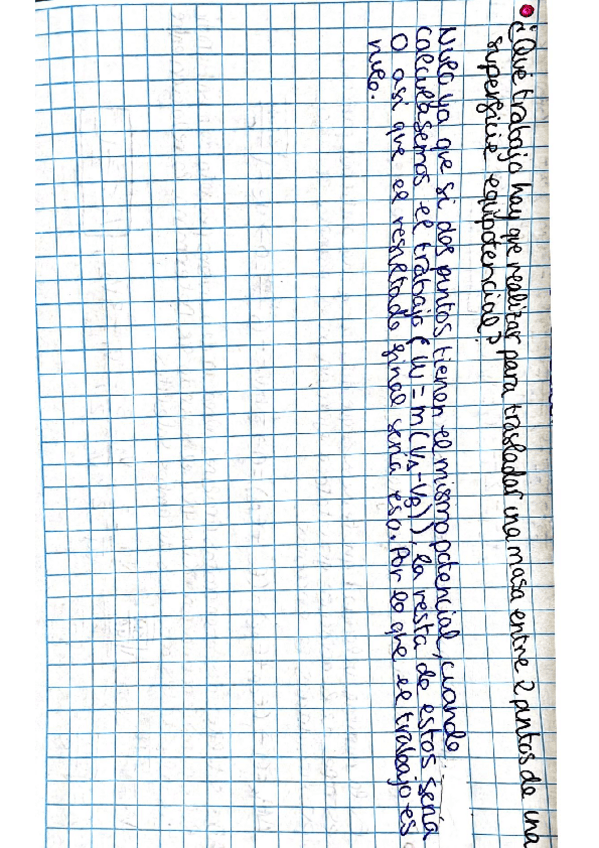 ¿Qué trabajo hay que realizar para trasladar una masa entre 2 puntos de una
superficie equipotencial?
Nulo ya que si dos puntos tienen el mismo potencial, cuando
calculasemos el trabajo (W = m(VA-VB)), la resta de estos sería
0 asi que el resultado final sería eso. Por lo que el trabajo es
nulo.